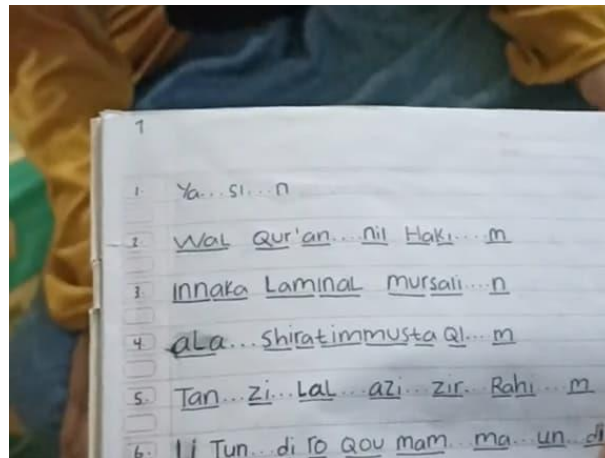 1
1. Ya...si...n
2. Wal Qur'an...nil Haki...m
3. innaka Laminal mursali...n
4. aLa...shiratimmusta Qi...m
5. Tan...zi...Lal...azi...zir...Rahi...m
6. Li Tun...di ro Qou mam...ma...un...di